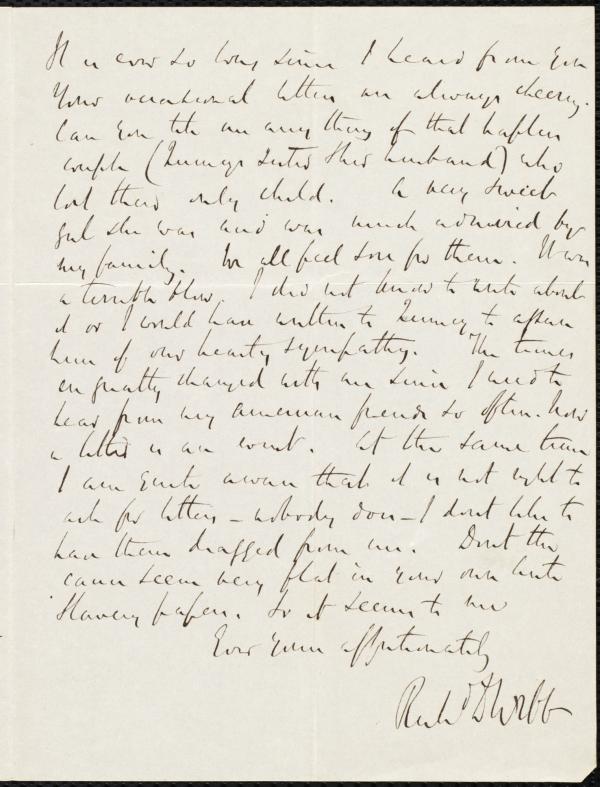 It is ever so long since I heard from you
Your occasional letters are always cheery.
Can you tell me any thing of that hapless
couple (Quincy's sister & her husband) who
lost their only child. A very sweet
girl she was and was much admired by
my family. We all feel sore for them. It was
a terrible blow. I did not know to write about
it or I would have written to Quincy to assure
him of our hearty sympathy. The times
are greatly changed with me since I used to
hear from my American friends so often. Now
a letter is an event. At the same time
I am quite aware that it is not right to
ask for letters - nobody does - I dont like to
have them dragged from me. Dont the
cause seem very flat in your own Anti
Slavery papers. So it seems to me
Ever yours affectionately
Richd D Webb